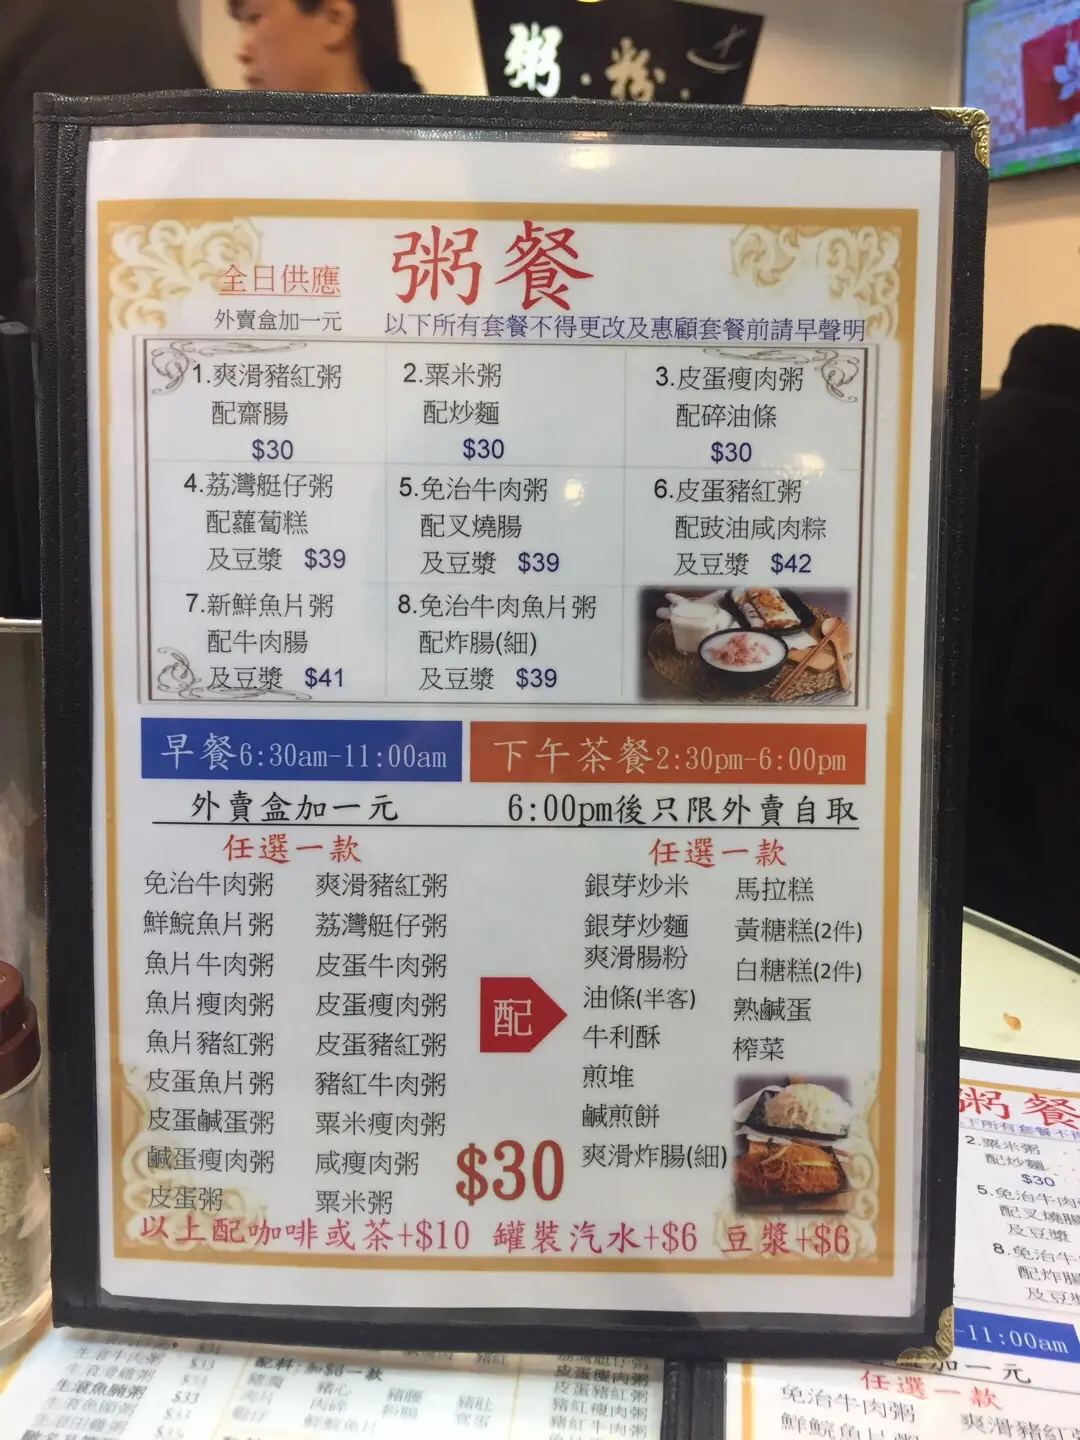 粥·粉·
粥餐
全日供應
外賣盒加一元
以下所有套餐不得更改及惠顧套餐前請早聲明
1.爽滑豬紅粥
配齋腸
$30
2.粟米粥
配炒麵
$30
3.皮蛋瘦肉粥
配碎油條
$30
4.荔灣艇仔粥
配蘿蔔糕
及豆漿 $39
5.免治牛肉粥
配叉燒腸
及豆漿 $39
6.皮蛋豬紅粥
配豉油咸肉粽
及豆漿 $42
7.新鮮魚片粥
配牛肉腸
及豆漿 $41
8.免治牛肉魚片粥
配炸腸(細)
及豆漿 $39
早餐6:30am-11:00am
下午茶餐2:30pm-6:00pm
外賣盒加一元
6:00pm後只限外賣自取
任選一款
免治牛肉粥 爽滑豬紅粥
鮮鯇魚片粥 荔灣艇仔粥
魚片牛肉粥 皮蛋牛肉粥
魚片瘦肉粥 皮蛋瘦肉粥
魚片豬紅粥 皮蛋豬紅粥
皮蛋魚片粥 豬紅牛肉粥
皮蛋鹹蛋粥 粟米瘦肉粥
鹹蛋瘦肉粥 咸瘦肉粥
皮蛋粥 粟米粥
配
$30
任選一款
銀芽炒米 馬拉糕
銀芽炒麵 黃糖糕(2件)
爽滑腸粉 白糖糕(2件)
油條(半客) 熟鹹蛋
牛利酥 榨菜
煎堆
鹹煎餅
爽滑炸腸(細)
以上配咖啡或茶+$10 罐裝汽水+$6 豆漿+$6
粥餐
2.粟米粥
配炒麵
$30
5.免治牛肉
配叉燒腸
及豆漿
8.免治牛
配炸腸
及豆漿
-11:00am
加一元
任選一款
免治牛肉粥 爽滑豬紅
鮮鯇魚片粥
$33
$33
$33
$33
配料:加$6一款